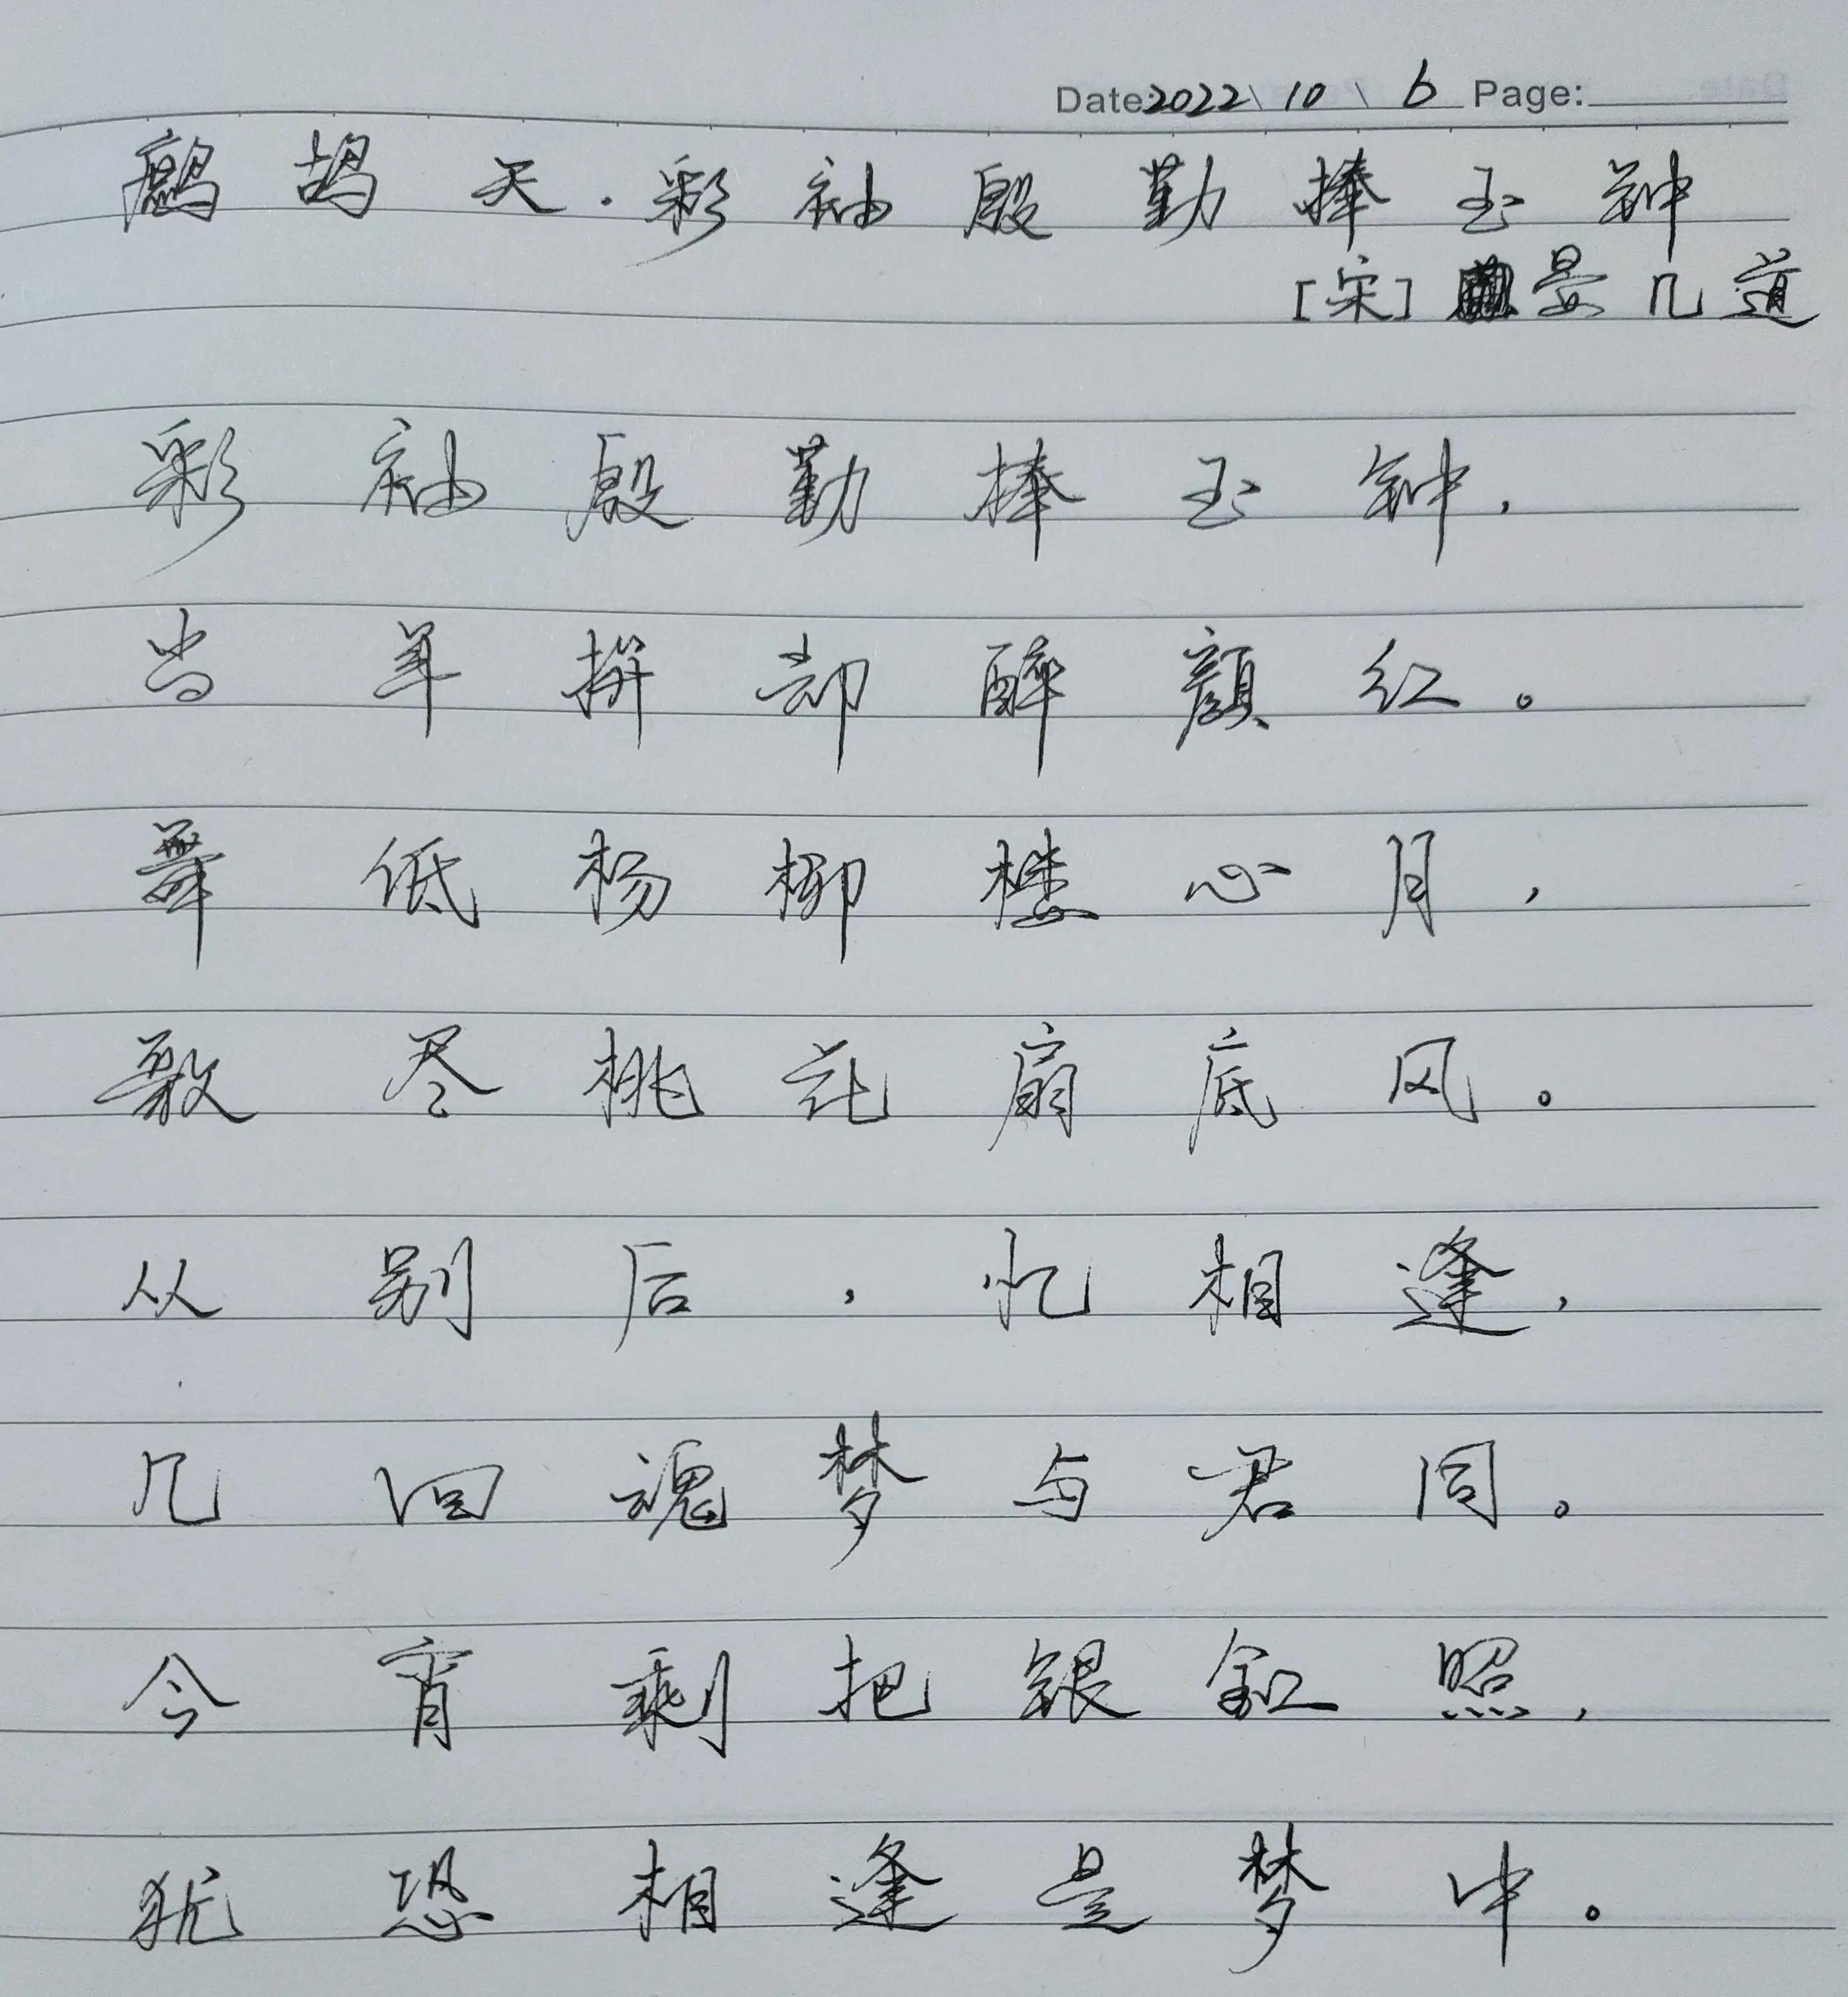 Date: 2022\10\6 Page:
鹧鸪天·彩袖殷勤捧玉钟
[宋]晏几道
彩袖殷勤捧玉钟,
当年拚却醉颜红。
舞低杨柳楼心月,
歌尽桃花扇底风。
从别后,忆相逢,
几回魂梦与君同。
今宵剩把银釭照,
犹恐相逢是梦中。